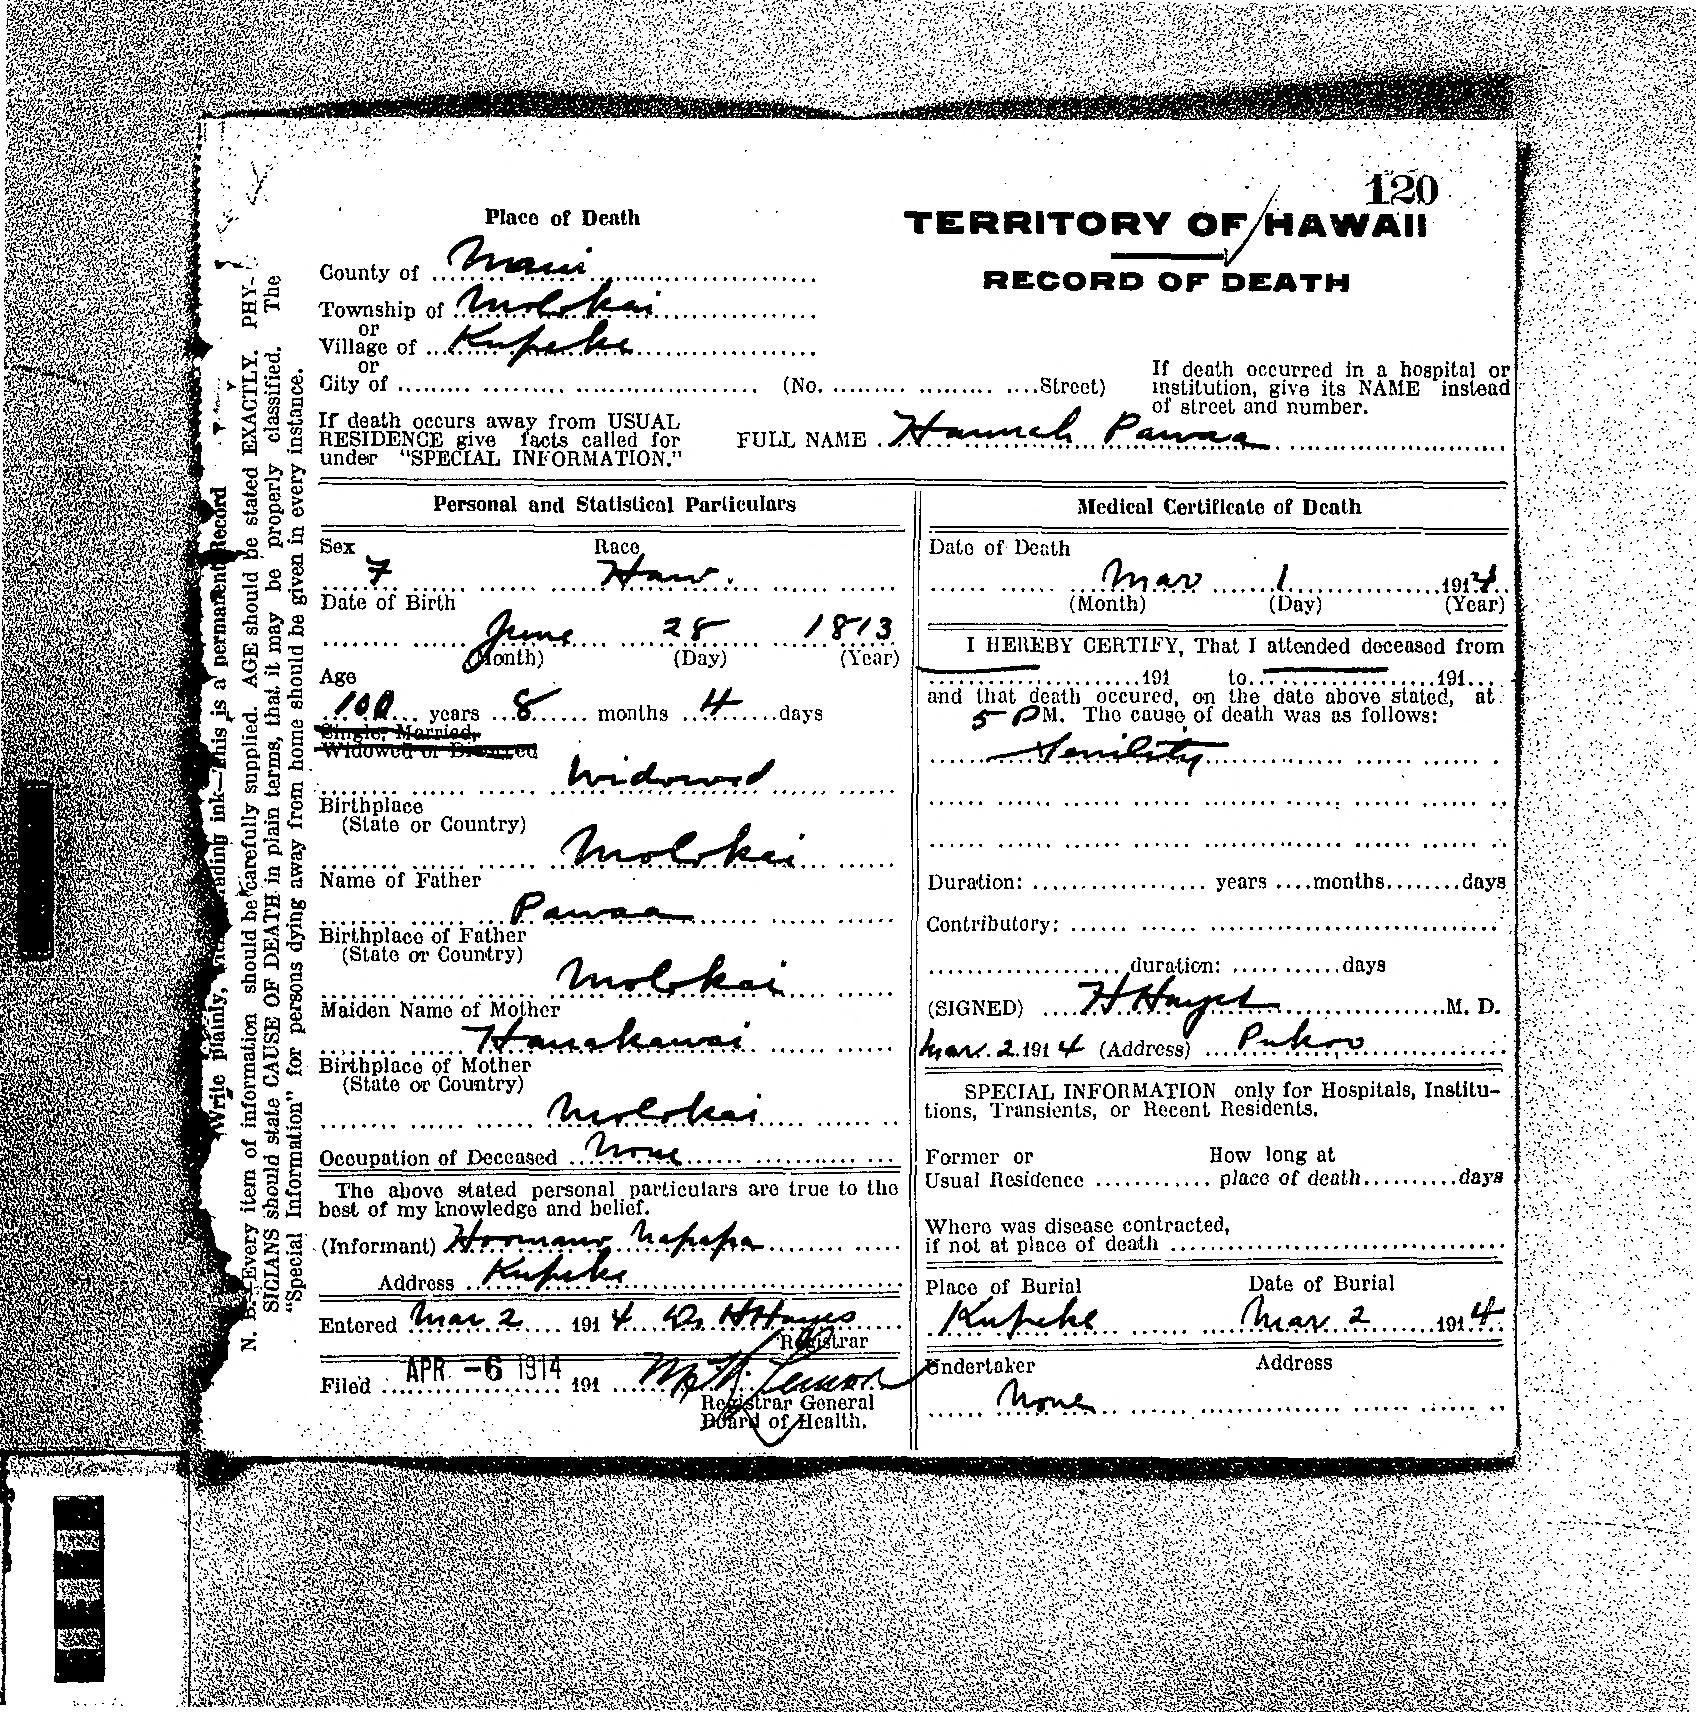 120
TERRITORY OF HAWAII
RECORD OF DEATH
Place of Death
County of Maui
Township of Molokai
or
Village of Kupeke
or
City of (No. Street)
If death occurred in a hospital or
institution, give its NAME instead
of street and number.
If death occurs away from USUAL
RESIDENCE give facts called for
under "SPECIAL INFORMATION."
FULL NAME Hannah Pawaa
Personal and Statistical Particulars
Sex Race
F Haw.
Date of Birth
June 28 1813
(Month) (Day) (Year)
Age
100 years 8 months 4 days
Single, Married,
Widowed or Divorced
Widowed
Birthplace
(State or Country)
Molokai
Name of Father
Pawaa
Birthplace of Father
(State or Country)
Molokai
Maiden Name of Mother
Hanakawai
Birthplace of Mother
(State or Country)
Molokai
Occupation of Deceased None
The above stated personal particulars are true to the
best of my knowledge and belief.
(Informant) Napapa
Address Kupeke
Entered Mar 2 1914 Dr H Hayes
Registrar
Filed APR -6 1914 191
Registrar General
Board of Health.
Medical Certificate of Death
Date of Death
Mar 1 1914
(Month) (Day) (Year)
I HEREBY CERTIFY, That I attended deceased from
191 to 191
and that death occured, on the date above stated, at
5 PM. The cause of death was as follows:
Senility
Duration: years months days
Contributory:
duration: days
(SIGNED) H Hayes M. D.
Mar. 2. 1914 (Address) Pukoo
SPECIAL INFORMATION only for Hospitals, Institu-
tions, Transients, or Recent Residents.
Former or How long at
Usual Residence place of death days
Where was disease contracted,
if not at place of death
Place of Burial Date of Burial
Kupeke Mar. 2 1914
Undertaker Address
None
Write plainly, ink—This is a permanent Record
N. B.—Every item of information should be carefully supplied. AGE should be stated EXACTLY. PHY-
SICIANS should state CAUSE OF DEATH in plain terms, that it may be properly classified. The
"Special Information" for persons dying away from home should be given in every instance.